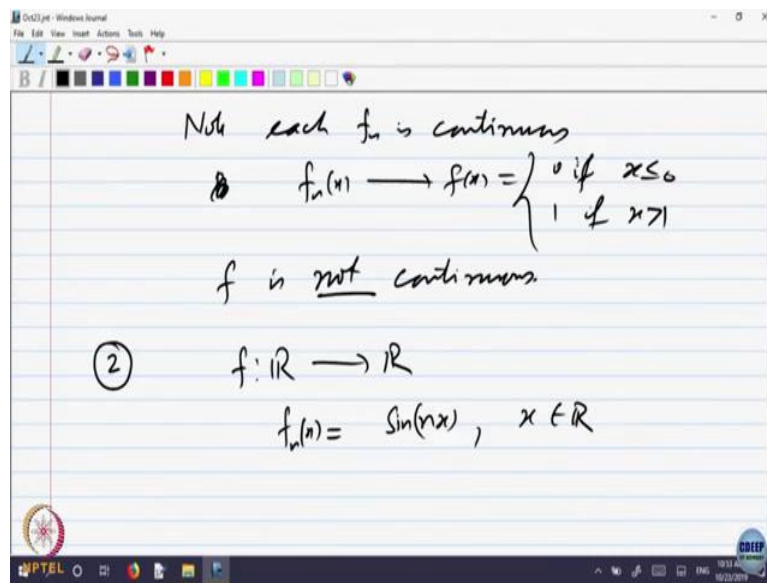 Oct23.jnt - Windows Journal
File Edit View Insert Actions Tools Help
B I
Note each fₙ is continuous
& fₙ(x) ⟶ f(x) = { 0 if x ≤ 0
1 if x > 1
f is not continuous.
② f: ℝ ⟶ ℝ
fₙ(x) = Sin(nx), x ∈ ℝ
NPTEL
CDEEP
ENG
10/23/2019